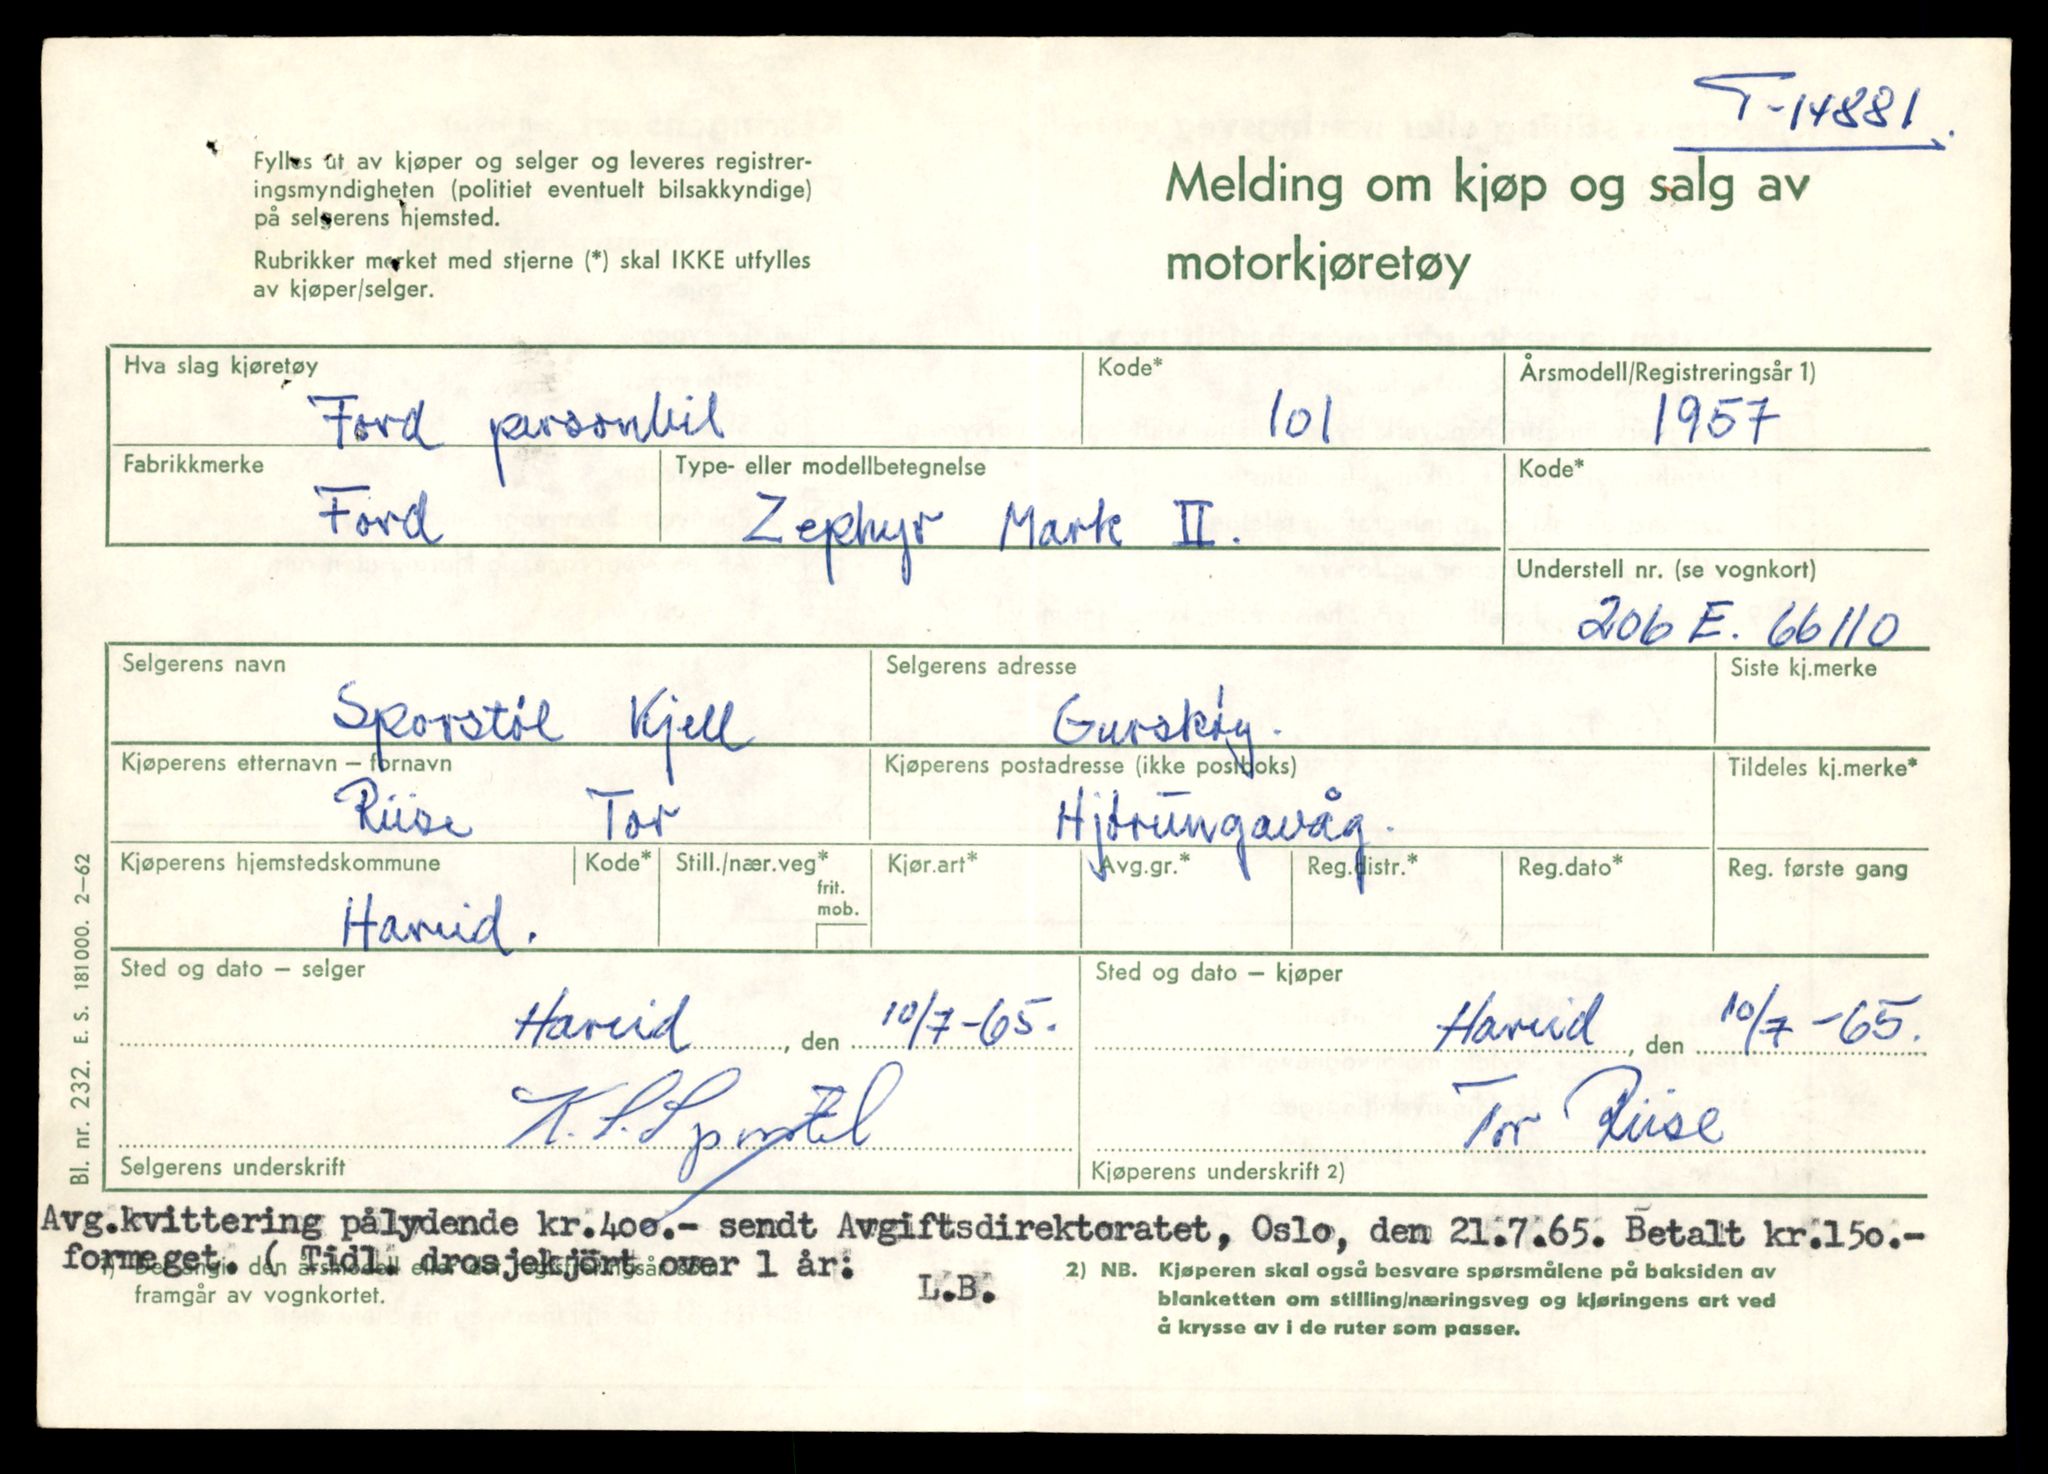 T-14881.
Fylles ut av kjøper og selger og leveres registrer-
ingsmyndigheten (politiet eventuelt bilsakkyndige)
på selgerens hjemsted.
Rubrikker merket med stjerne (*) skal IKKE utfylles
av kjøper/selger.
Melding om kjøp og salg av
motorkjøretøy
Hva slag kjøretøy
Kode*
Årsmodell/Registreringsår 1)
Ford personbil
101
1957
Fabrikkmerke
Type- eller modellbetegnelse
Kode*
Ford
Zephyr Mark II.
Understell nr. (se vognkort)
206 E. 66110
Selgerens navn
Selgerens adresse
Siste kj.merke
Sporstøl Kjell
Gurskøy.
Kjøperens etternavn – fornavn
Kjøperens postadresse (ikke postboks)
Tildeles kj.merke*
Riise Tor
Hjørungavåg.
Kjøperens hjemstedskommune
Kode*
Still./nær.veg*
frit.
mob.
Kjør.art*
Avg.gr.*
Reg.distr.*
Reg.dato*
Reg. første gang
Hareid.
Sted og dato – selger
Sted og dato – kjøper
Hareid, den 10/7-65.
Hareid, den 10/7-65.
K. S. Sporstøl
Tor Riise
Selgerens underskrift
Kjøperens underskrift 2)
Bl. nr. 232. E. S. 181000. 2–62
Avg.kvittering pålydende kr.400.- sendt Avgiftsdirektoratet, Oslo, den 21.7.65. Betalt kr.150.-
formeget. ( Tidl. drosjekjört over 1 år:
L.B.
1) den årsmodell eller
framgår av vognkortet.
2) NB. Kjøperen skal også besvare spørsmålene på baksiden av
blanketten om stilling/næringsveg og kjøringens art ved
å krysse av i de ruter som passer.